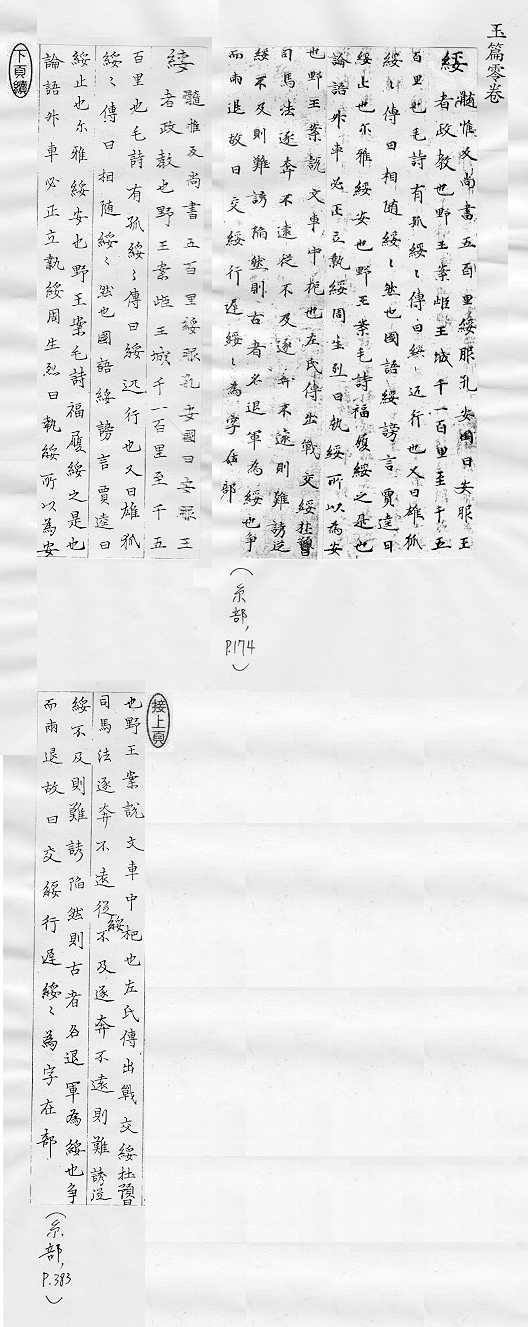 玉篇零卷
綏
髓惟反尚書五百里綏服孔安國曰安服王
者政教也野王案㫮王城千一百里至千五
百里也毛詩有狐綏〻傳曰綏〻迊行也又曰雄狐
綏〻傳曰相随綏〻然也國語綏謗言賈逵曰
綏止也尔雅綏安也野王案毛詩福履綏之是也
論語升車必正立執綏周生烈曰執綏所以為安
也野王案說文車中把也左氏傳出戰交綏杜預曰
司馬法逐奔不遠從不及逐奔不遠則難誘從
綏不及則難誘陷然則古者名退軍為綏也争
而兩退故曰交綏行遲綏〻為字在部
(糸部, P.174)
綏
髓惟反尚書五百里綏服孔安國曰安服王
者政教也野王案王城千一百里至千五
百里也毛詩有狐綏〻傳曰綏迊行也又曰雄狐
綏〻傳曰相随綏〻然也國語綏謗言賈逵曰
綏止也尔雅綏安也野王案毛詩福履綏之是也
論語升車必正立執綏周生烈曰執綏所以為安
下頁續
接上頁
也野王案說文車中把也左氏傳出戰交綏杜預曰
司馬法逐奔不遠從綏不及逐奔不遠則難誘從
綏不及則難誘陷然則古者名退軍為綏也争
而兩退故曰交綏行遲綏〻為字在部
(糸部, P.383)